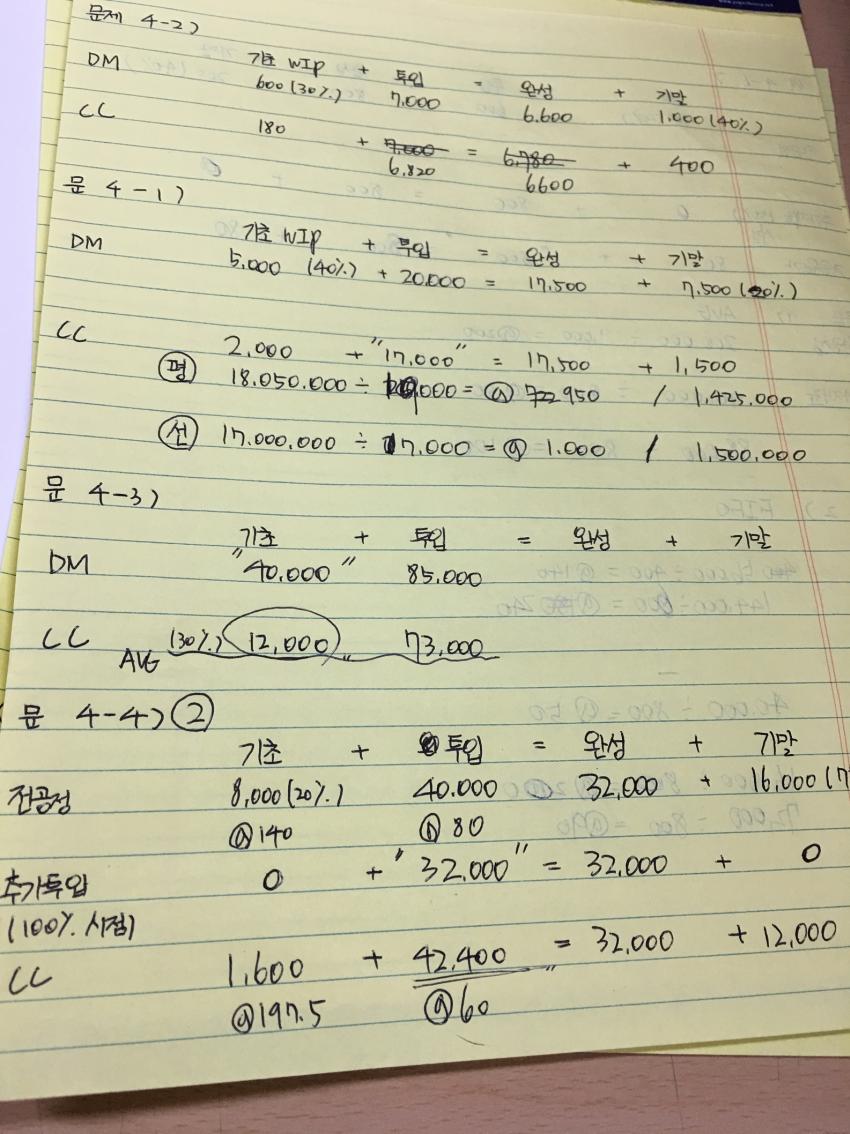 문제 4-2)
기초 WIP + 투입 = 완성 + 기말
DM 600(30%) 7,000 6,600 1,000(40%)
CC 180 + 7,000 = 6,780 + 400
6,820 6600
문 4-1)
기초 WIP + 투입 = 완성 + 기말
DM 5,000 (40%) + 20,000 = 17,500 + 7,500 (20%)
CC 2,000 + "17,000" = 17,500 + 1,500
평 18,050,000 ÷ 19,000 = @ 950 / 1,425,000
선 17,000,000 ÷ 17,000 = @ 1,000 / 1,500,000
문 4-3)
기초 + 투입 = 완성 + 기말
DM "40,000" 85,000
CC AVG (30%) 12,000 73,000
문 4-4) ②
기초 + 투입 = 완성 + 기말
전공정 8,000(20%) 40,000 32,000 + 16,000(7
@140 @80
추가투입 0 + "32,000" = 32,000 + 0
(100% 시점)
CC 1,600 + 42,400 = 32,000 + 12,000
@197.5 @60